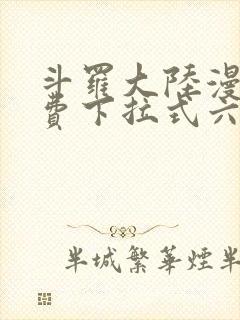 斗羅大陸漫
費下拉式六
半城繁華煙半